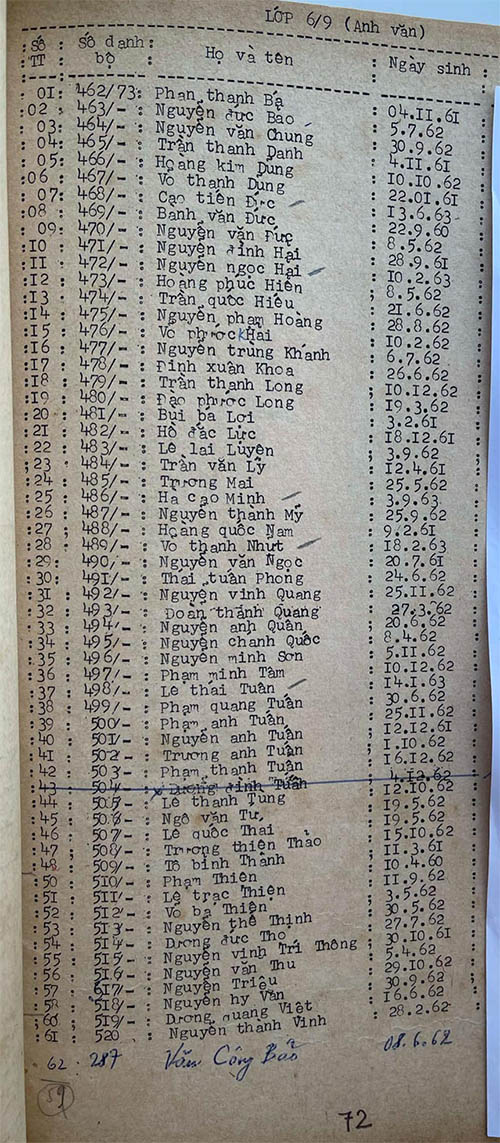 LỚP 6/9 (Anh văn)
Số TT : Số danh bộ : Họ và tên : Ngày sinh
01: 462/73: Phan thanh Bá : 04.11.61
:02 : 463/- : Nguyễn đức Bảo : 5.7.62
03: 464/- : Nguyễn văn Chung : 30.9.62
04: 465/- : Trần thanh Danh : 4.11.61
05: 466/- : Hoàng kim Dung : 10.10.62
:06 : 467/- : Võ thanh Dũng : 22.01.61
07: 468/- : Cao tiến Đức : 13.6.63
:08 : 469/- : Banh văn Đức : 22.9.60
:09: 470/- : Nguyễn văn Đức : 8.5.62
:10 : 471/- : Nguyễn đình Hải : 28.9.61
:11 : 472/- : Nguyễn ngọc Hải : 10.2.63
:12 : 473/- : Hoàng phúc Hiền ; 8.5.62
:13 : 474/- : Trần quốc Hiếu : 21.6.62
:14 : 475/- : Nguyễn phạm Hoàng : 28.8.62
:15 : 476/- : Võ phước Khai : 10.2.62
:16 : 477/- : Nguyễn trung Khánh : 6.7.62
:17 : 478/- : Đinh xuân Khoa : 26.6.62
:18 : 479/- : Trần thanh Long ; 10.12.62
:19 : 480/- : Đào phước Long : 19.3.62
:20 : 481/- : Bùi bá Lợi : 3.2.61
:21 : 482/- : Hồ đắc Lực : 18.12.61
:22 : 483/- : Lê lai Luyện : 3.9.62
;23 : 484/- : Trần văn Lý : 12.4.61
:24 : 485/- : Trương Mai : 25.5.62
:25 : 486/- : Hà cao Minh : 3.9.63
:26 : 487/- : Nguyễn thanh Mỹ : 25.9.62
:27 ; 488/- : Hoàng quốc Nam : 9.2.61
:28 : 489/- : Võ thanh Nhựt : 18.2.63
:29: 490/- : Nguyễn văn Ngọc : 20.7.61
:30: 491/- : Thái tuấn Phong : 24.6.62
:31 : 492/- : Nguyễn vinh Quang : 25.11.62
:32 : 493/- : Đoàn thanh Quang : 27.3.62
:33 : 494/- : Nguyễn anh Quân : 20.6.62
:34 : 495/- : Nguyễn chanh Quốc : 8.4.62
:35 : 496/- : Nguyễn minh Sơn : 5.11.62
:36 : 497/- : Phạm minh Tâm : 10.12.62
:37 : 498/- : Lê thai Tuấn : 14.1.63
:38 : 499/- : Phạm quang Tuấn : 30.6.62
:39 : 500/- : Phạm anh Tuấn : 25.11.62
:40 : 501/- : Nguyễn anh Tuấn : 12.12.61
:41 : 502/- : Trương anh Tuấn : 1.10.62
:42 : 503/- : Phạm thanh Tuấn : 16.12.62
:43 : 504/- : Dương đình Tuấn : 4.12.62
:44 : 505/- : Lê thanh Tùng : 12.10.62
:45 : 506/- : Ngô văn Tư : 19.5.62
:46 : 507/- : Lê quốc Thái : 19.5.62
:47 ; 508/- : Trương thiện Thảo : 15.10.62
:48 : 509/- : Tô bình Thanh ; 11.3.61
:50 : 510/- : Phạm Thiên : 10.4.60
:51 : 511/- : Lê trạc Thiện : 11.9.62
:52 : 512/- : Võ bá Thiện : 3.5.62
:53 : 513/- : Nguyễn thế Thịnh : 30.5.62
:54 : 514/- : Dương đức Thọ : 27.7.62
:55 : 515/- : Nguyễn vinh Trí Thông ; 30.10.61
:56 : 516/- : Nguyễn văn Thu : 5.4.62
:57 : 517/- : Nguyễn Triệu : 29.10.62
:58 : 518/- : Nguyễn hy Vân : 30.9.62
;60 ; 519/- : Dương quang Việt : 16.6.62
:61 : 520 : Nguyễn thanh Vinh : 28.2.62
. 62 . 287 Văn Công Bảo 08.6.62
59
72